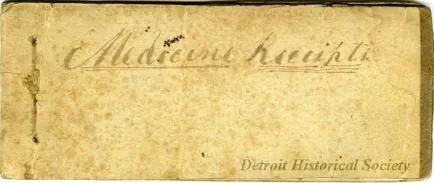 Medecine Receipts
Detroit Historical Society